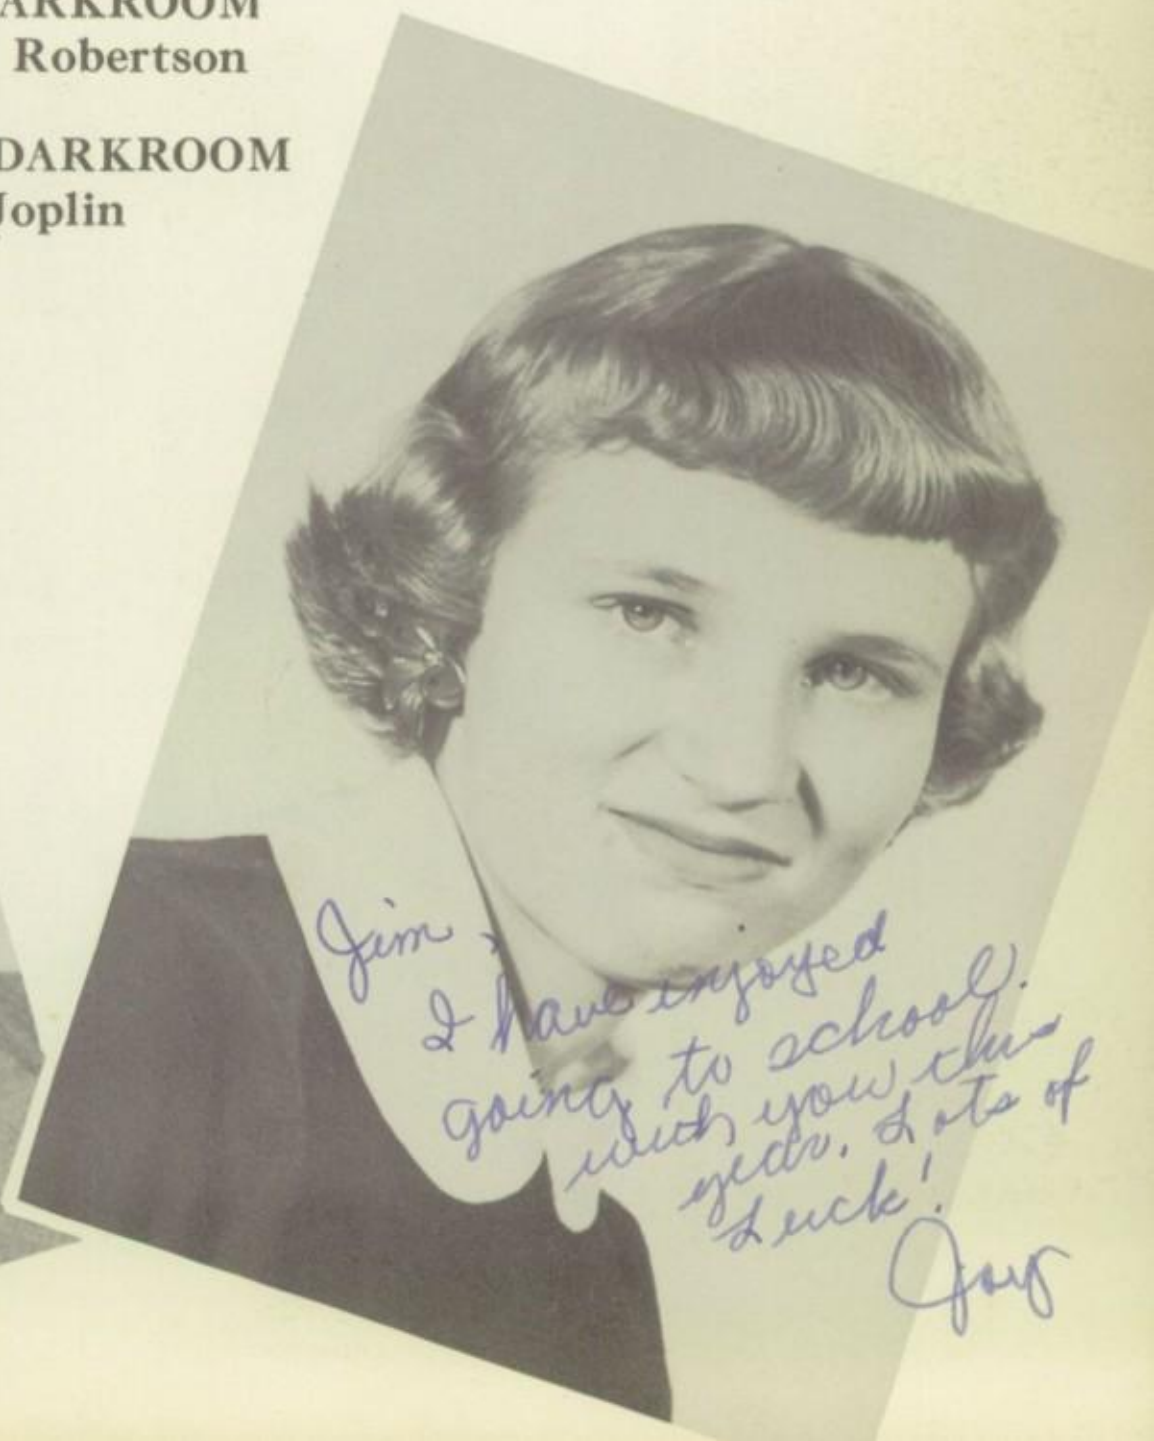 ARKROOM
Robertson
DARKROOM
Joplin
Jim,
I have enjoyed
going to school
with you this
year. Lots of
Luck!
Joy